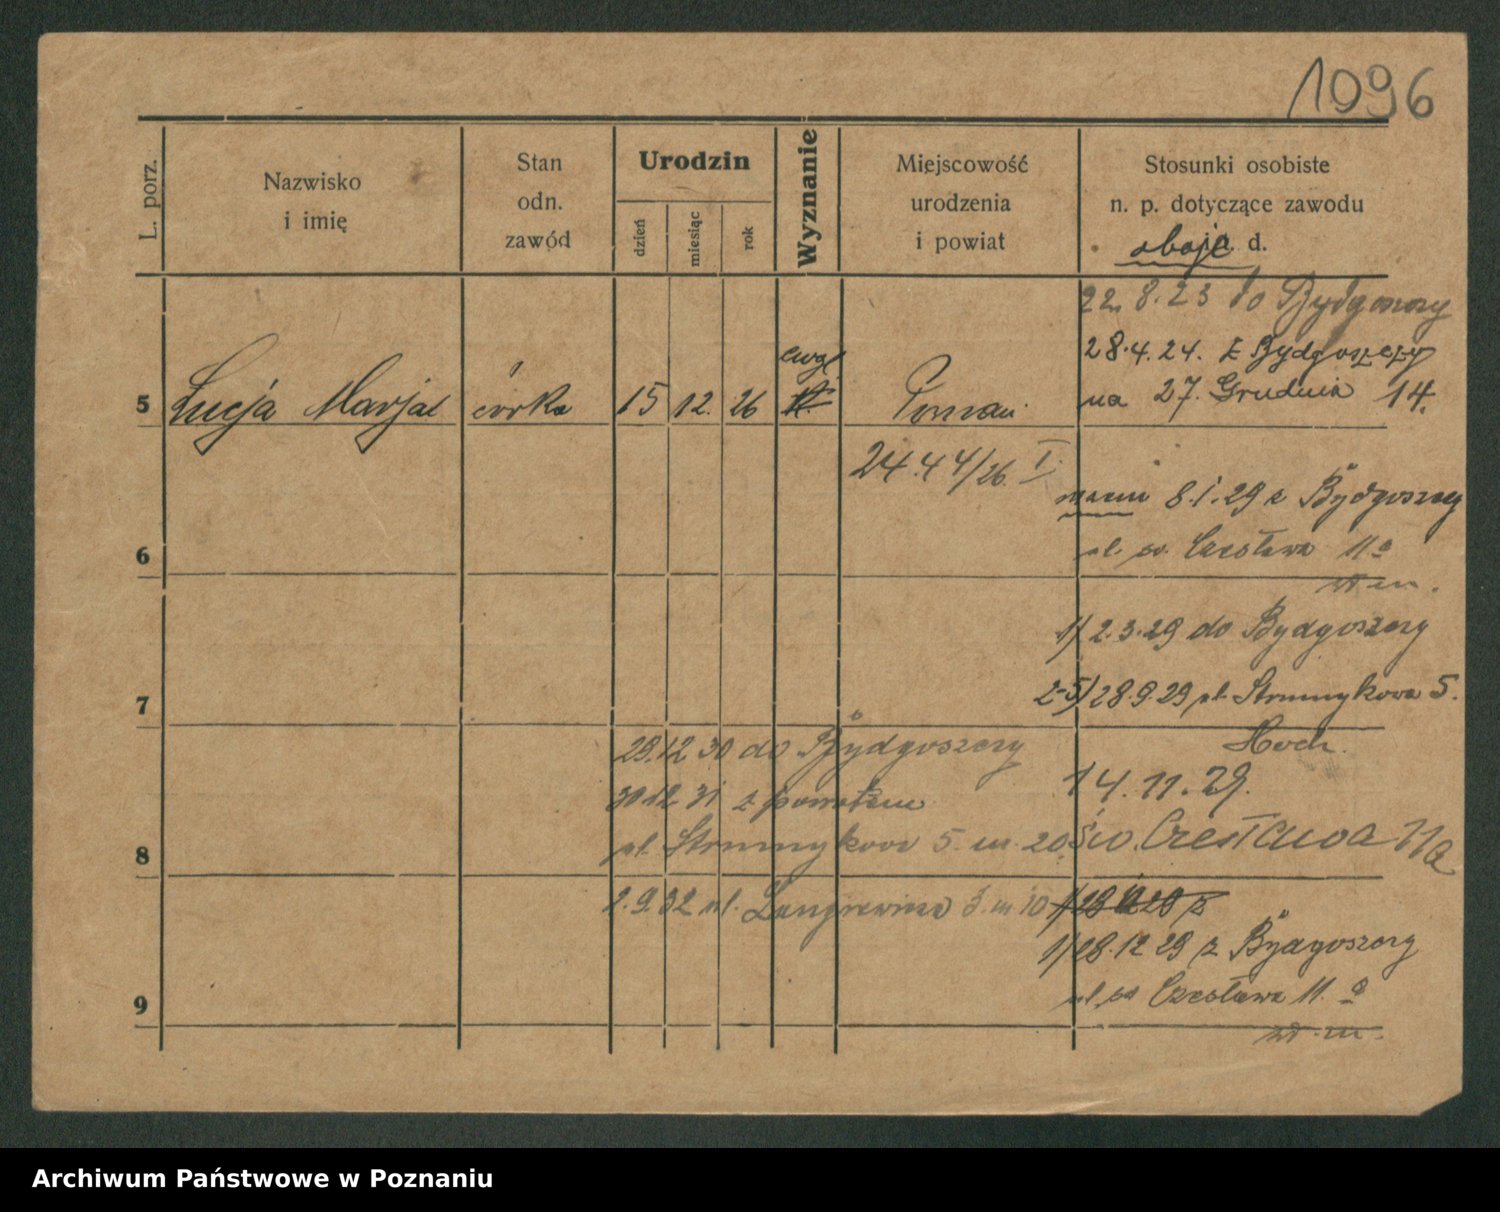 1096
L. porz.
Nazwisko
i imię
Stan
odn.
zawód
Urodzin
dzień
miesiąc
rok
Wyznanie
Miejscowość
urodzenia
i powiat
Stosunki osobiste
n. p. dotyczące zawodu
i t. d.
oboje
22. 8. 23 do Bydgoszczy
28. 4. 24. z Bydgoszczy
na 27. Grudnia 14.
5 Łucja Marja córka 15 12. 26 ewgl Poznań
24.44/26. I
8.1.29 z Bydgoszczy
ul. św. Czesława 11a
6
1/ 2.3.29 do Bydgoszczy
2-5/ 28.9.29 ul. Strumykowa 5.
7
Hoch.
14. 11. 29.
św. Czesława 11a
29.12 30 do Bydgoszczy
30 12 31 z powrotem
ul. Strumykowa 5. m. 20.
8
2.9.32 ul. Langiewicza 3. m 10
1/ 28.12 29 z Bydgoszczy
ul. św Czesława 11. a
9
Archiwum Państwowe w Poznaniu